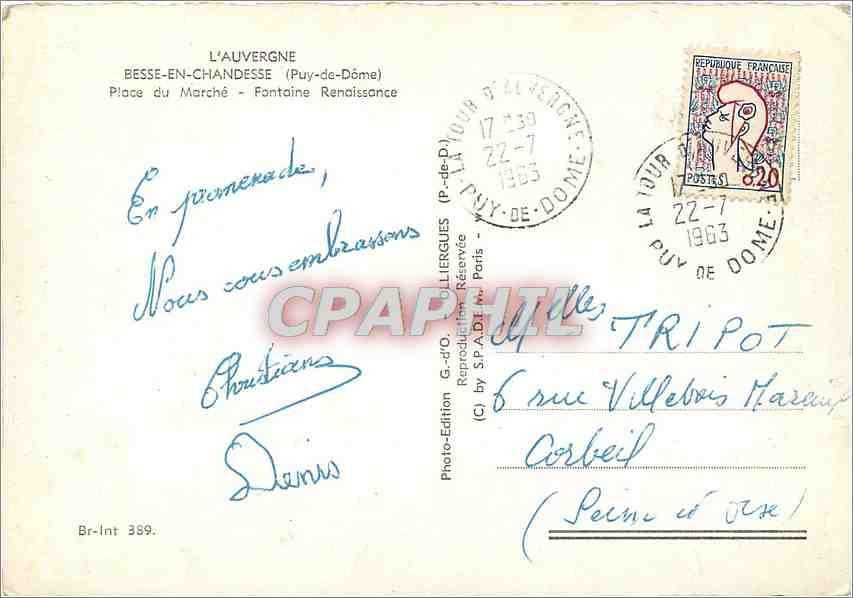 L'AUVERGNE
BESSE-EN-CHANDESSE (Puy-de-Dôme)
Place du Marché - Fontaine Renaissance
En promenade,
Nous vous embrassons
Christiane
Denis
Br-Int 389.
Photo-Edition G.-d'O. - OLLIERGUES (P.-de-D.)
Reproduction Réservée
(C) by S.P.A.D.E.M. Paris -
LA TOUR D'AUVERGNE
17 H30
22-7
1963
PUY-DE-DOME
REPUBLIQUE FRANÇAISE
POSTES
0,20
LA TOUR D'AUVERGNE
17
22-7
1963
PUY DE DOME
CPAPHIL
Melles TRIPOT
6 rue Villebois Mareuil
Corbeil
(Seine et Oise)